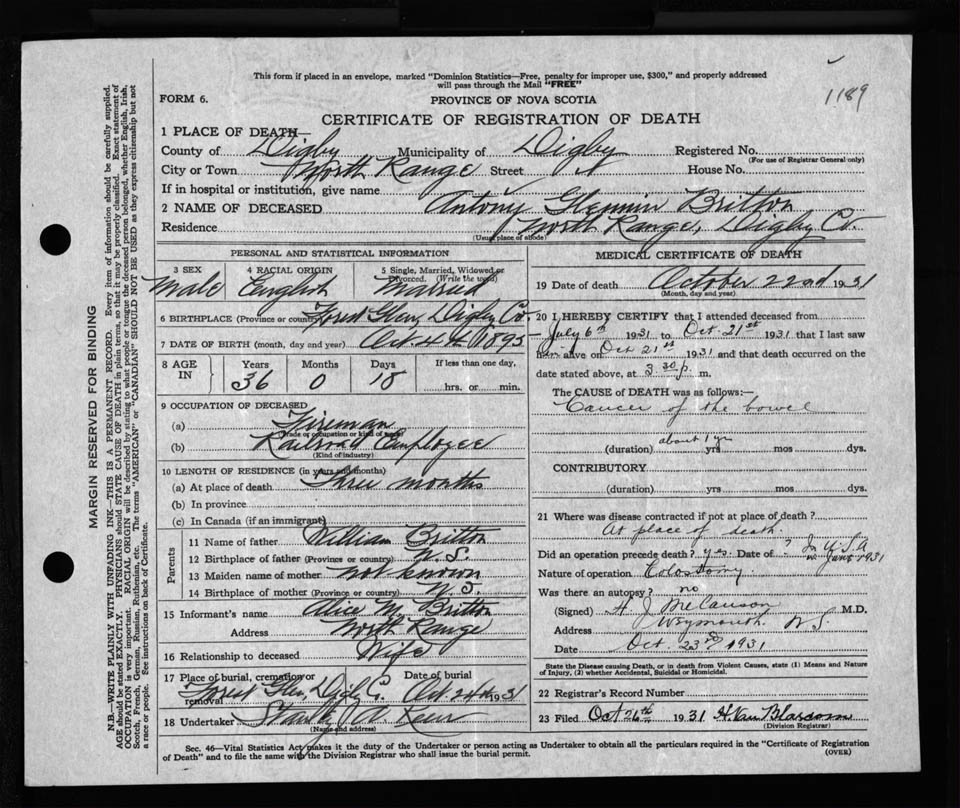 This form if placed in an envelope, marked "Dominion Statistics—Free, penalty for improper use, $300," and properly addressed
will pass through the Mail "FREE"
1189
FORM 6.
PROVINCE OF NOVA SCOTIA
CERTIFICATE OF REGISTRATION OF DEATH
1 PLACE OF DEATH—
County of Digby Municipality of Digby Registered No.
(For use of Registrar General only)
City or Town North Range Street House No.
If in hospital or institution, give name
2 NAME OF DECEASED Antony Britton
Residence North Range, Digby Co.
(Usual place of abode)
PERSONAL AND STATISTICAL INFORMATION
3 SEX 4 RACIAL ORIGIN 5 Single, Married, Widowed or Divorced. (Write the word)
Male English Married
6 BIRTHPLACE (Province or country) Forest Glen, Digby Co.
7 DATE OF BIRTH (month, day and year) Oct 4th 1895
8 AGE IN Years Months Days If less than one day,
36 0 18 hrs. or min.
9 OCCUPATION OF DECEASED
(a) Fireman
(Trade or occupation or kind of work)
(b) Railroad Employee
(Kind of industry)
10 LENGTH OF RESIDENCE (in years and months)
(a) At place of death Three months
(b) In province
(c) In Canada (if an immigrant)
Parents
11 Name of father William Britton
12 Birthplace of father (Province or country) N.S.
13 Maiden name of mother not known
14 Birthplace of mother (Province or country) N.S
15 Informant's name Alice M. Britton
Address North Range
16 Relationship to deceased Wife
17 Place of burial, cremation or removal Date of burial
Forest Glen, Digby Co. Oct 24th 1931
18 Undertaker
(Name and address)
MEDICAL CERTIFICATE OF DEATH
19 Date of death October 22nd 1931
(Month, day and year)
20 I HEREBY CERTIFY that I attended deceased from
July 6th 1931 to Oct. 21st 1931 that I last saw
him alive on Oct 21st 1931 and that death occurred on the
date stated above, at 3 30 p. m.
The CAUSE OF DEATH was as follows:—
Cancer of the bowel
(duration) about 1 yr yrs mos dys.
CONTRIBUTORY
(duration) yrs mos dys.
21 Where was disease contracted if not at place of death?
At place of death.
Did an operation precede death? yes Date of ? In U.S.A
in June 1931
Nature of operation Colostomy
Was there an autopsy? no
(Signed) H J M.D.
Address Weymouth N S
Date Oct. 23rd 1931
State the Disease causing Death, or in death from Violent Causes, state (1) Means and Nature
of Injury, (2) whether Accidental, Suicidal or Homicidal.
22 Registrar's Record Number
23 Filed Oct 26th 1931 H. Van Blarcom
(Division Registrar)
Sec. 46—Vital Statistics Act makes it the duty of the Undertaker or person acting as Undertaker to obtain all the particulars required in the "Certificate of Registration
of Death" and to file the same with the Division Registrar who shall issue the burial permit.
(OVER)
MARGIN RESERVED FOR BINDING
N.B.—WRITE PLAINLY WITH UNFADING INK—THIS IS A PERMANENT RECORD. Every item of information should be carefully supplied.
AGE should be stated EXACTLY. PHYSICIANS should STATE CAUSE OF DEATH in plain terms, so that it may be properly classified. Exact statement of
OCCUPATION is very important. RACIAL ORIGIN will be described by stating to what people or tongue the deceased person belonged, whether English, Irish,
Scotch, French, German, Russian, Ruthenian, etc. The terms "AMERICAN" or "CANADIAN" SHOULD NOT BE USED as they express citizenship but not
a race or people. See instructions on back of Certificate.